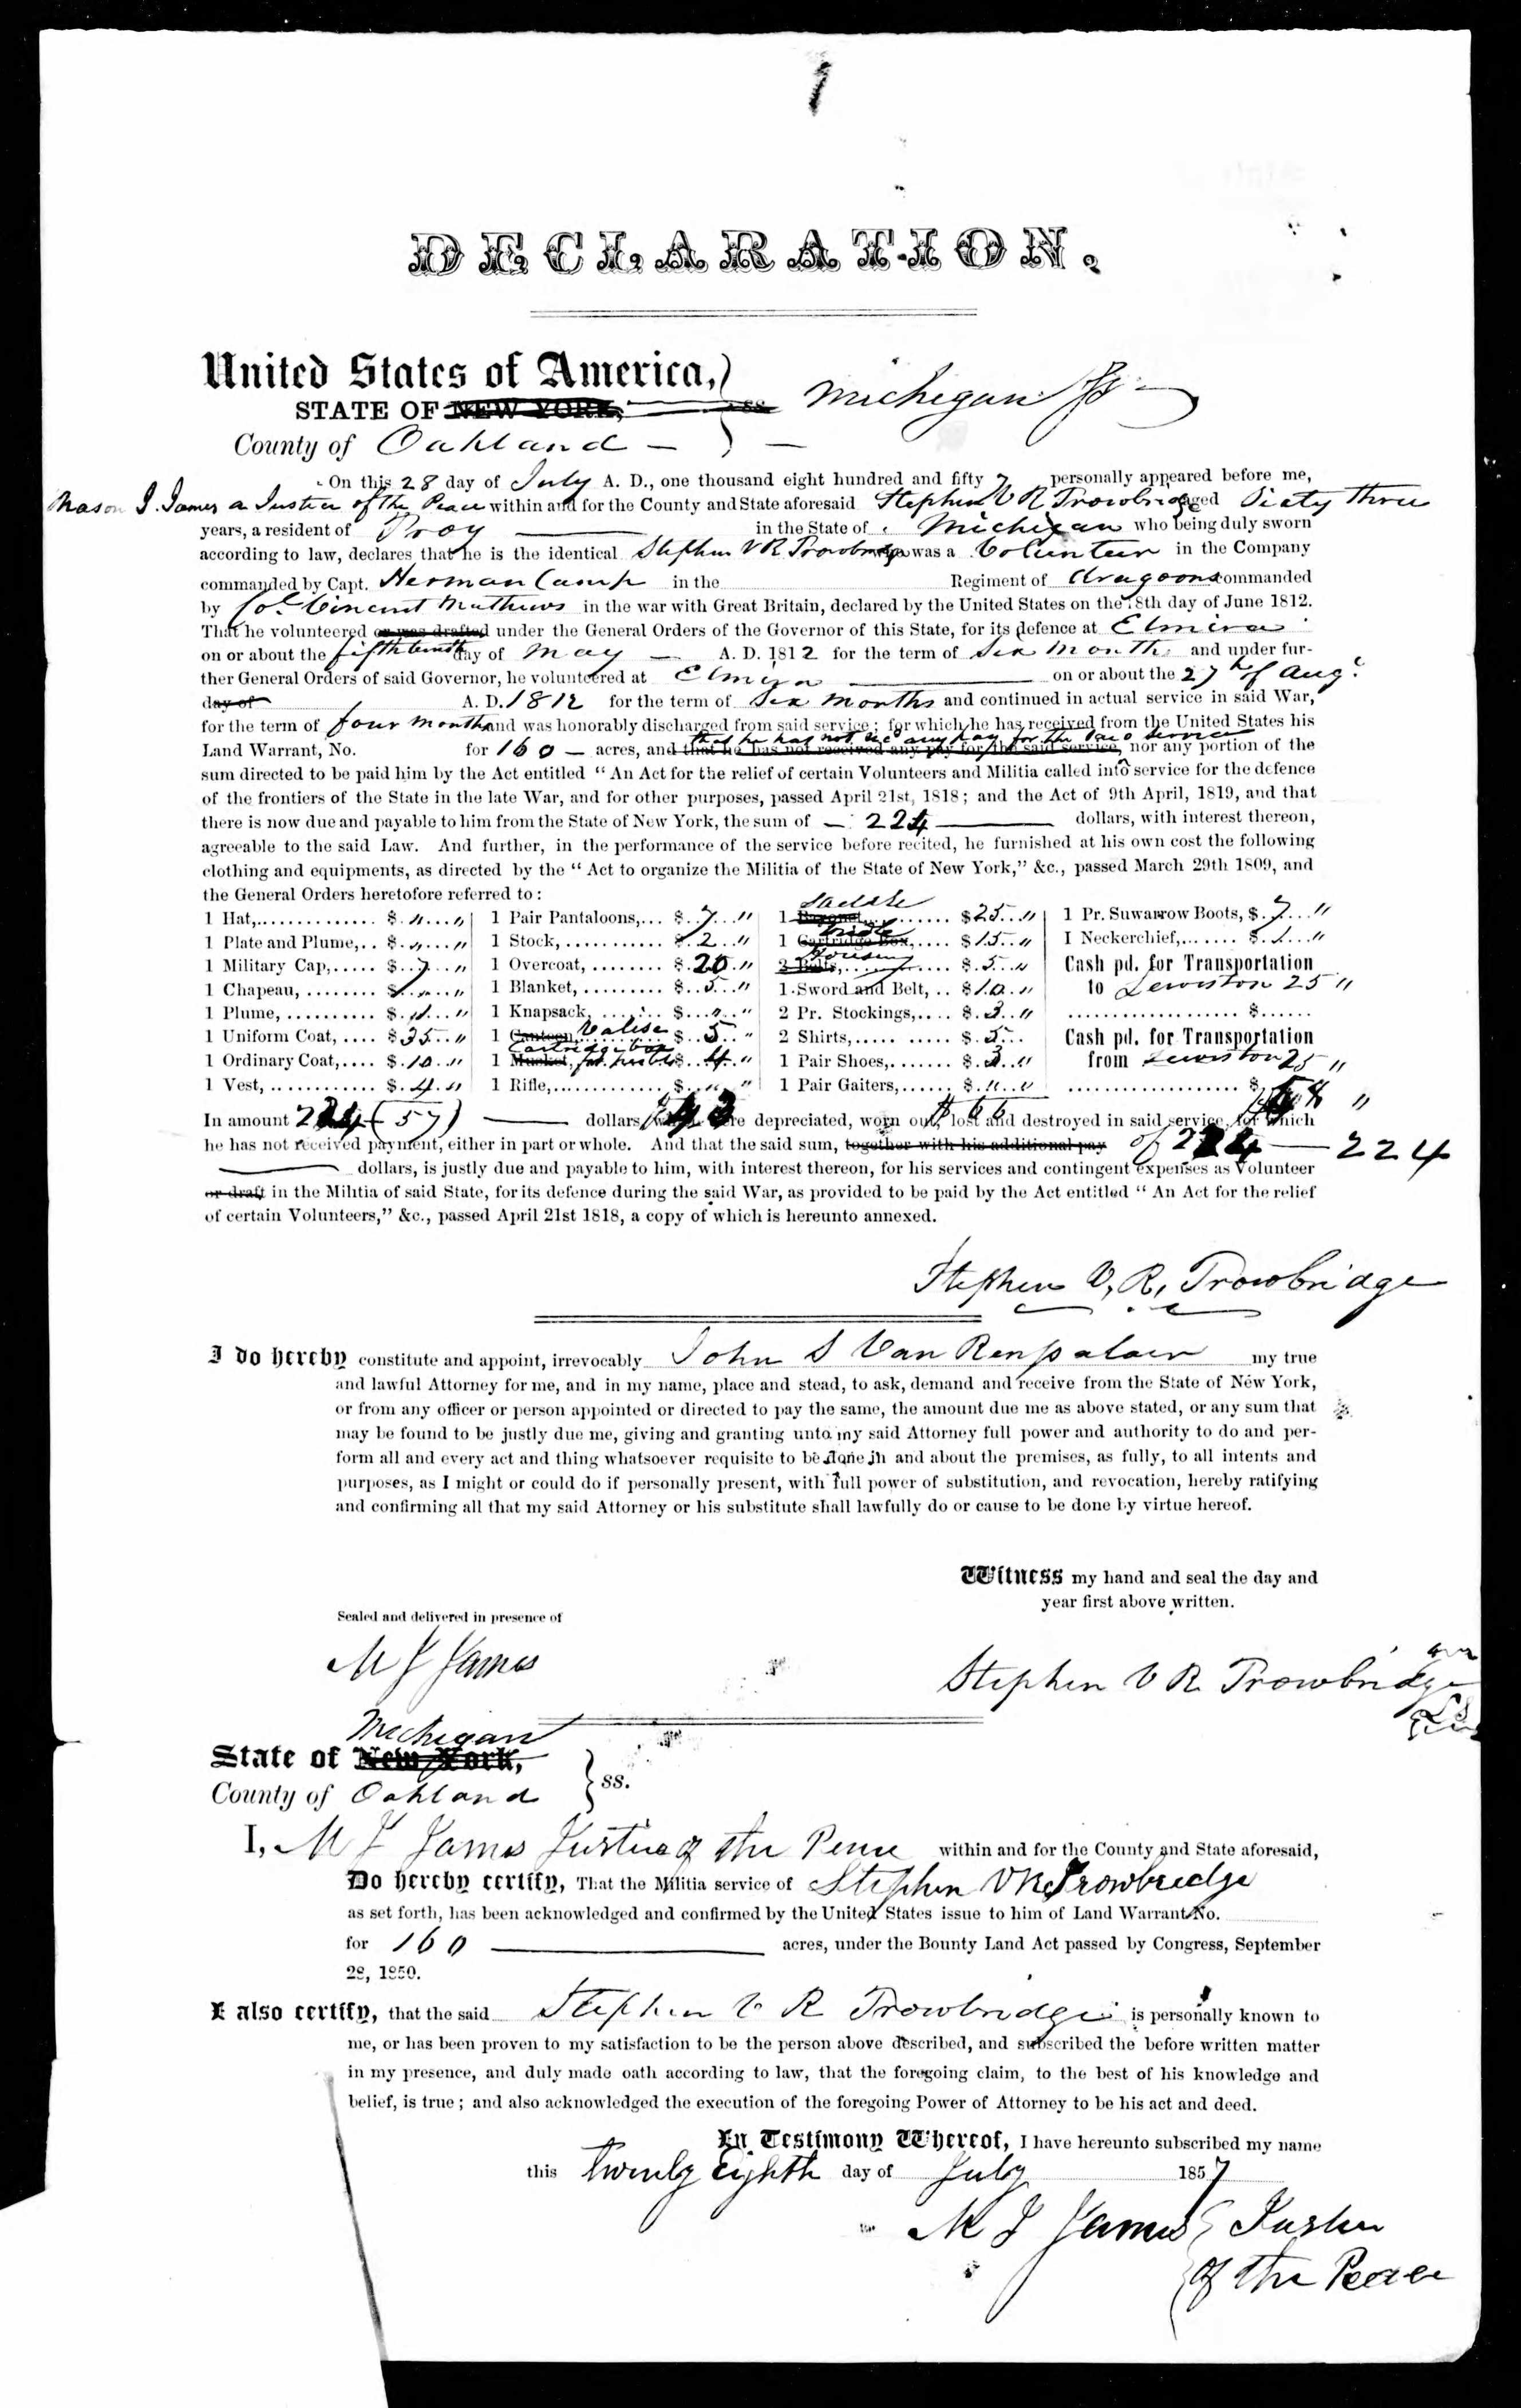 DECLARATION.
United States of America,
STATE OF NEW YORK, ss Michigan ss
County of Oakland
On this 28 day of July A. D., one thousand eight hundred and fifty 7 personally appeared before me,
Mason I. James a Justice of the Peace within and for the County and State aforesaid Stephen V R Trowbridge aged Sixty three
years, a resident of Troy in the State of Michigan who being duly sworn
according to law, declares that he is the identical Stephen V R Trowbridge was a Volunteer in the Company
commanded by Capt. Herman Camp in the Regiment of dragoons commanded
by Col. Vincent Mathews in the war with Great Britain, declared by the United States on the 18th day of June 1812.
That he volunteered or was drafted under the General Orders of the Governor of this State, for its defence at Elmira
on or about the fifthteenth day of May A. D. 1812 for the term of Six Months and under fur-
ther General Orders of said Governor, he volunteered at Elmira on or about the 27th of Aug.
day of A. D. 1812 for the term of Six Months and continued in actual service in said War,
for the term of four months and was honorably discharged from said service; for which he has received from the United States his
that he has not rec'd any pay for the said service
Land Warrant, No. for 160 acres, and that he has not received any pay for the said service, nor any portion of the
sum directed to be paid him by the Act entitled "An Act for the relief of certain Volunteers and Militia called into service for the defence
of the frontiers of the State in the late War, and for other purposes, passed April 21st, 1818; and the Act of 9th April, 1819, and that
there is now due and payable to him from the State of New York, the sum of 224 dollars, with interest thereon,
agreeable to the said Law. And further, in the performance of the service before recited, he furnished at his own cost the following
clothing and equipments, as directed by the "Act to organize the Militia of the State of New York," &c., passed March 29th 1809, and
the General Orders heretofore referred to:
1 Hat, $ " "
1 Plate and Plume, $ " "
1 Military Cap, $ 7 "
1 Chapeau, $ " "
1 Plume, $ "
1 Uniform Coat, $ 35 "
1 Ordinary Coat, $ 10 "
1 Vest, $ 4 "
1 Pair Pantaloons, $ 7 "
1 Stock, $ 2 "
1 Overcoat, $ 20 "
1 Blanket, $ 5 "
1 Knapsack, $ " "
1 Canteen, Valise $ 5 "
1 Musket, Cartridge box $ 4 "
1 Rifle, $ " "
1 Bayonet, Saddle $ 25 "
1 Cartridge Box, Bridle $ 15 "
3 Belts, Housing $ 5 "
1 Sword and Belt, $ 10 "
2 Pr. Stockings, $ 3 "
2 Shirts, $ 5
1 Pair Shoes, $ 3 "
1 Pair Gaiters, $ " "
1 Pr. Suwarrow Boots, $ 7 "
1 Neckerchief, $ 1 "
Cash pd. for Transportation
to Lewiston 25 "
$
Cash pd. for Transportation
from Lewiston 25 "
$
In amount 224 (57) dollars, were depreciated, worn out, lost and destroyed in said service, for which
he has not received payment, either in part or whole. And that the said sum, together with his additional pay of 224 224
dollars, is justly due and payable to him, with interest thereon, for his services and contingent expenses as Volunteer
or draft in the Militia of said State, for its defence during the said War, as provided to be paid by the Act entitled "An Act for the relief
of certain Volunteers," &c., passed April 21st 1818, a copy of which is hereunto annexed.
Stephen V. R. Trowbridge
I do hereby constitute and appoint, irrevocably John S Van Rensalaer my true
and lawful Attorney for me, and in my name, place and stead, to ask, demand and receive from the State of New York,
or from any officer or person appointed or directed to pay the same, the amount due me as above stated, or any sum that
may be found to be justly due me, giving and granting unto my said Attorney full power and authority to do and per-
form all and every act and thing whatsoever requisite to be done in and about the premises, as fully, to all intents and
purposes, as I might or could do if personally present, with full power of substitution, and revocation, hereby ratifying
and confirming all that my said Attorney or his substitute shall lawfully do or cause to be done by virtue hereof.
Witness my hand and seal the day and
year first above written.
Sealed and delivered in presence of
M I James
Stephen V R Trowbridge
Michigan
State of New York,
County of Oakland ss.
I, M I James Justice of the Peace within and for the County and State aforesaid,
Do hereby certify, That the Militia service of Stephen V R Trowbridge
as set forth, has been acknowledged and confirmed by the United States issue to him of Land Warrant No.
for 160 acres, under the Bounty Land Act passed by Congress, September
28, 1850.
I also certify, that the said Stephen V R Trowbridge is personally known to
me, or has been proven to my satisfaction to be the person above described, and subscribed the before written matter
in my presence, and duly made oath according to law, that the foregoing claim, to the best of his knowledge and
belief, is true; and also acknowledged the execution of the foregoing Power of Attorney to be his act and deed.
In Testimony Whereof, I have hereunto subscribed my name
this twenty Eighth day of July 1857
M I James Justice
of the Peace